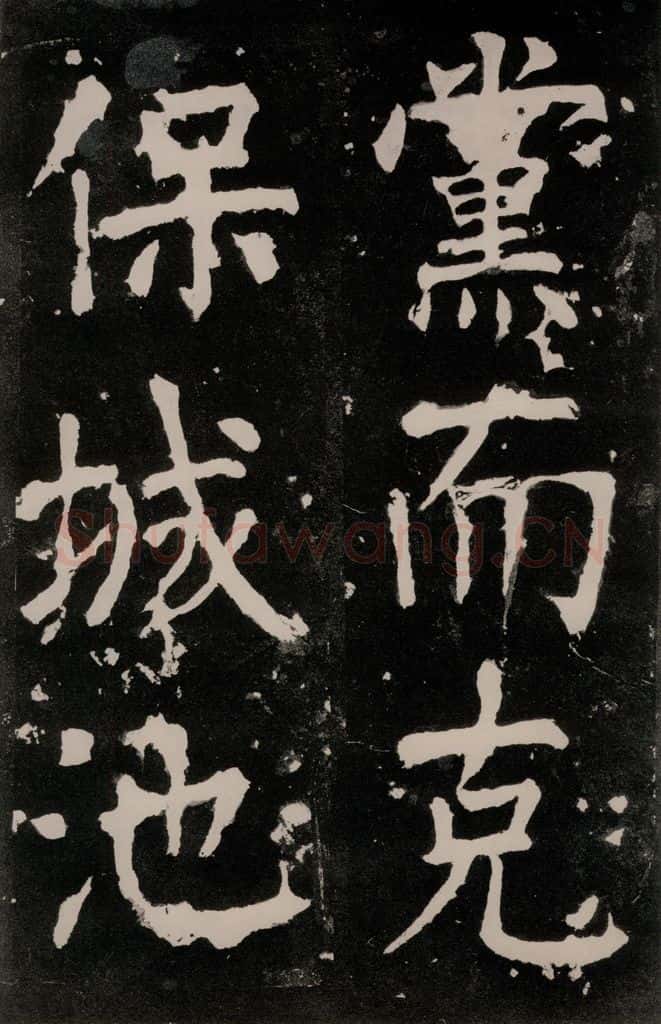 黨而克
保城池
Shufawang.CN